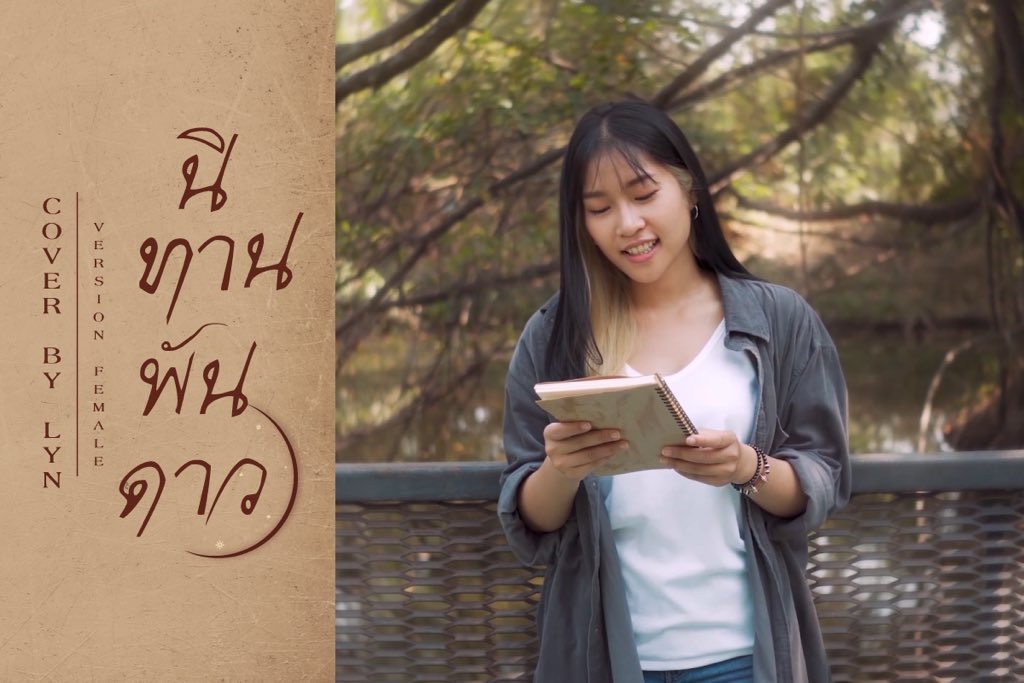 COVER BY LYN
VERSION FEMALE
นิ
ทาน
พัน
ดาว